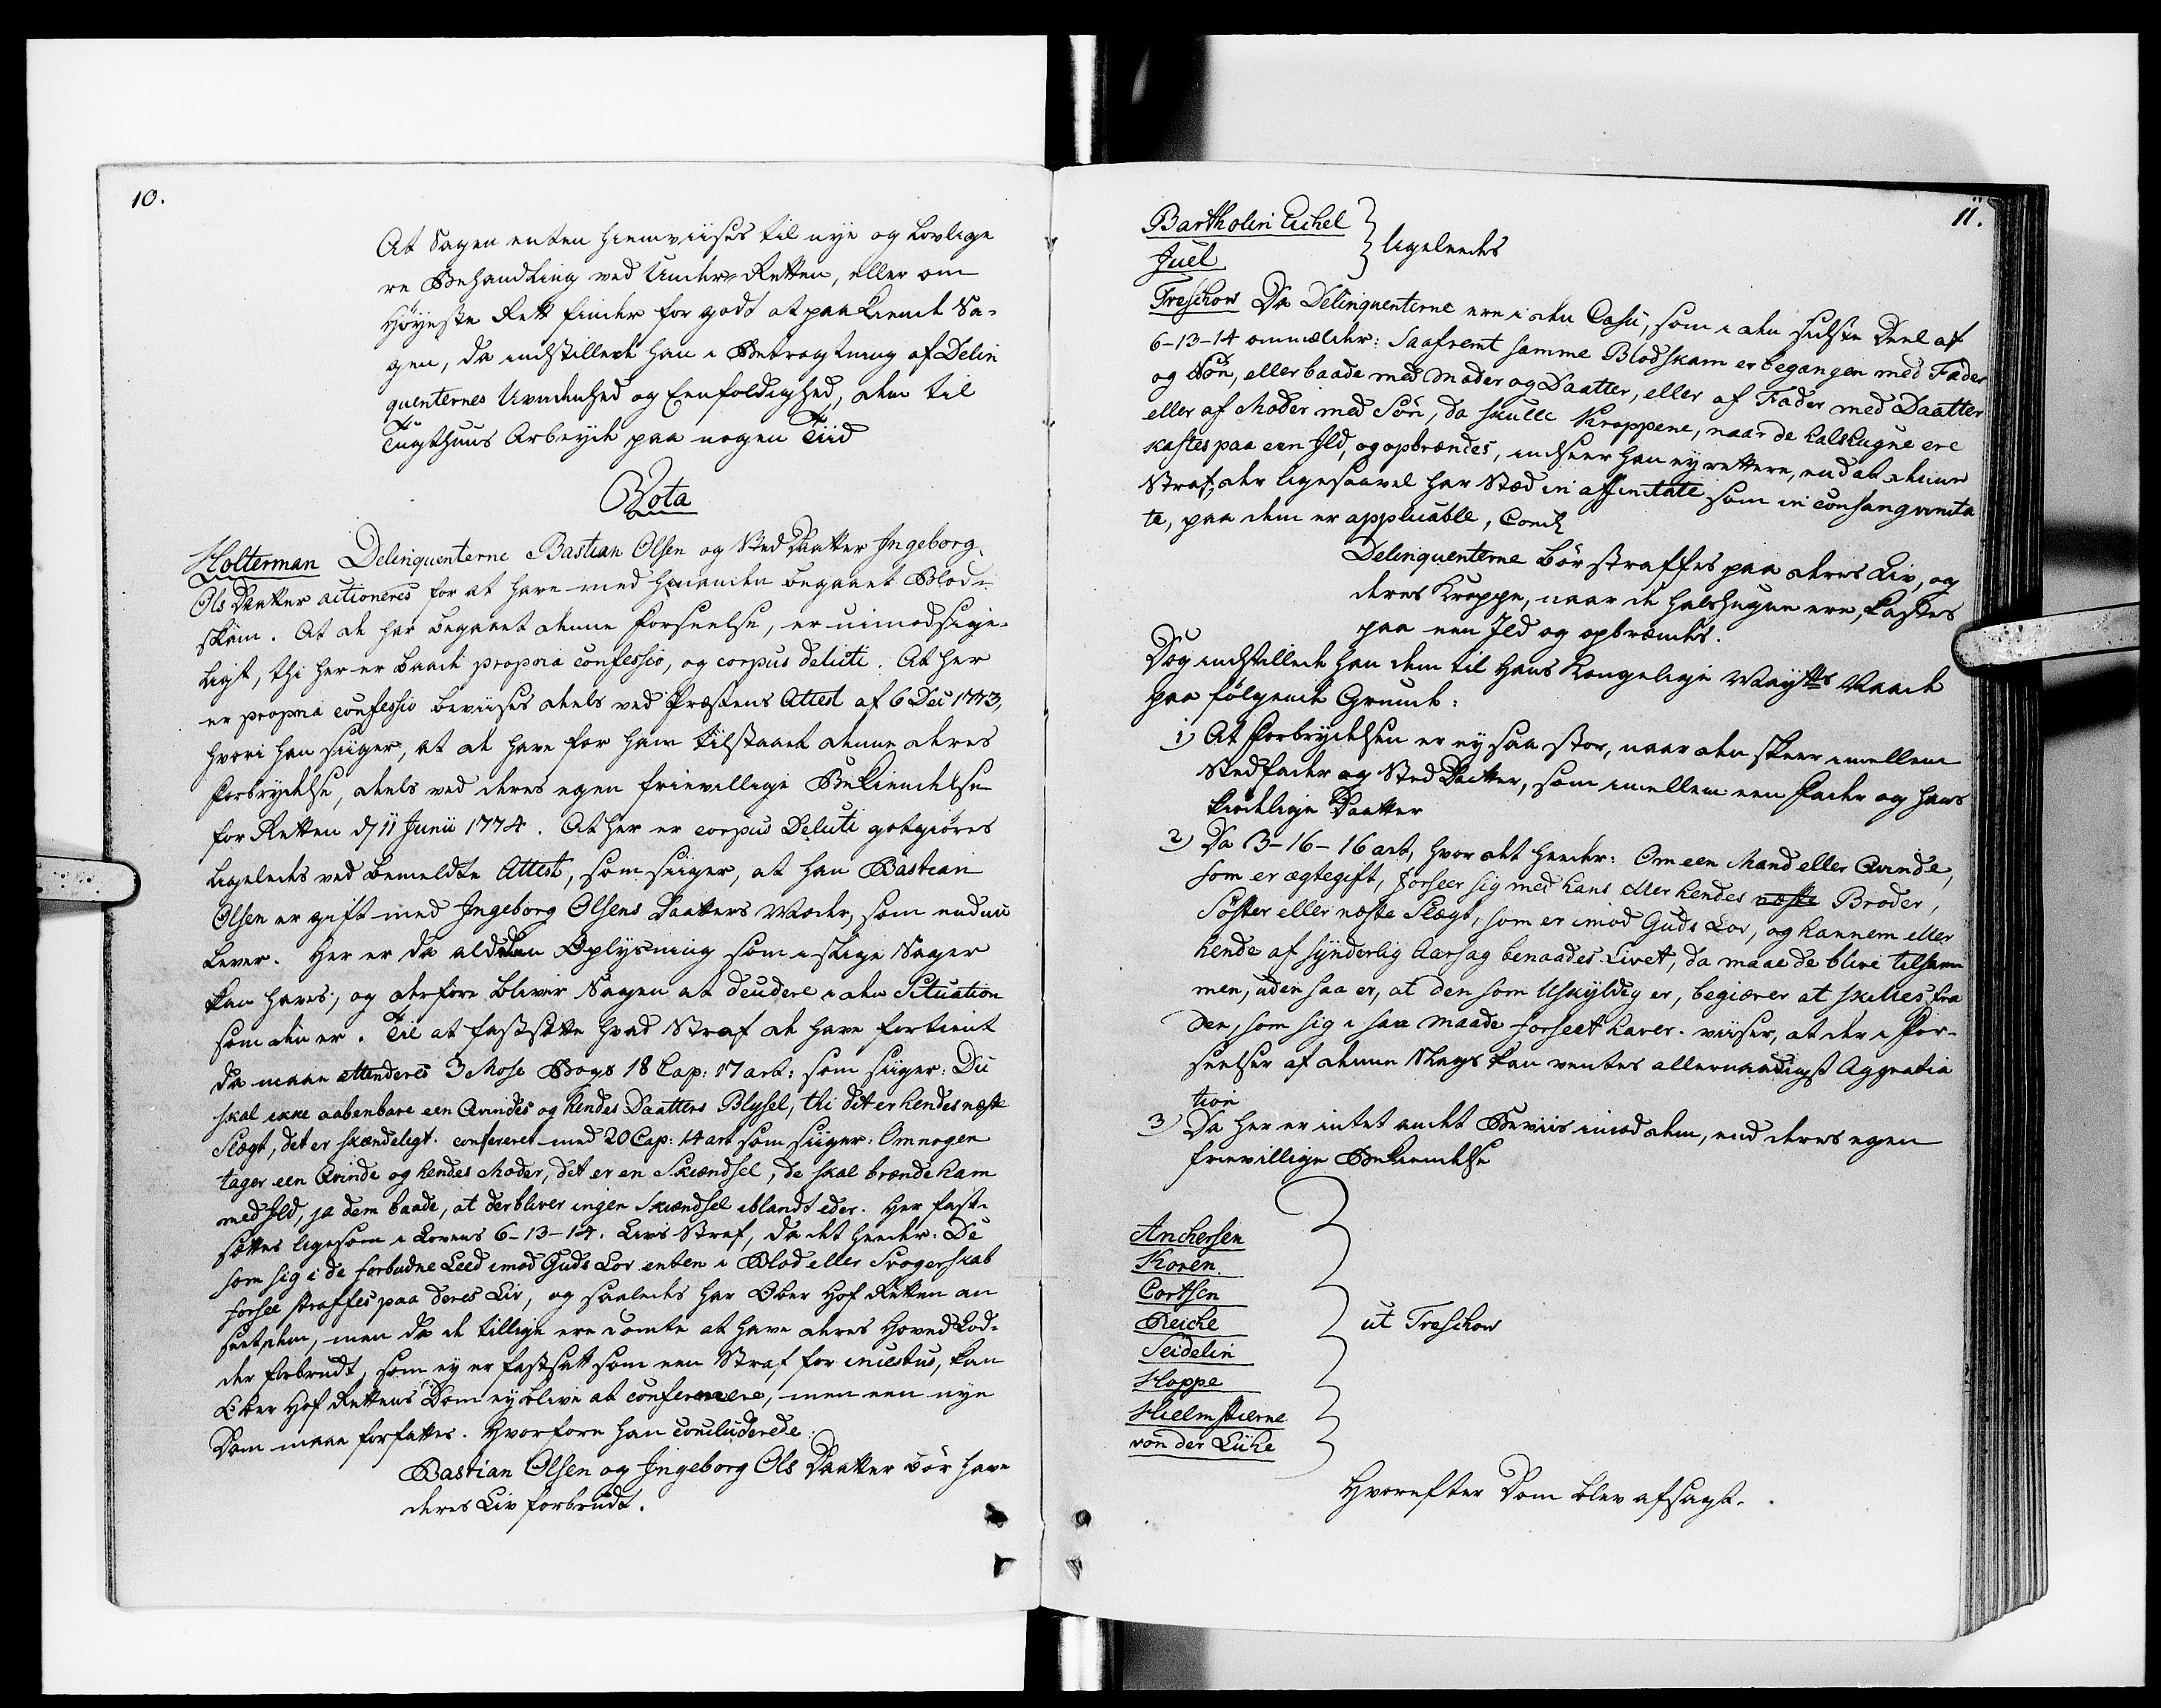 10.
At Sagen enten hiemviises til nye og lovlige
re Behandling ved Under-Retten, eller om
Høyeste Rett finder for godt at paakiende Sa-
gen, da indstillede han i Betragtning af Delin
qventernes Uvidenhed og Eenfoldighed, dem til
Tugthuus Arbeyde paa nogen Tiid
Vota
Holterman Delinquenterne Bastian Olsen og Sted Daatter Ingeborg
Ols Daatter actioneres for at have med hinanden begaaet Blod-
skam. At de har begaaet denne Forseelse, er uimodsige-
ligt, thi her er baade propria confessio, og corpus delicti. At her
er propria confessio beviises deels ved Præstens Attest af 6 Dec 1773,
hvori han siiger, at de have for ham tilstaaet denne deres
Forbrydelse, deels ved deres egen frievillige Bekiendelse
for Retten d 11 Junii 1774. At her er corpus Delicti godtgiøres
ligeledes ved bemeldte Attest, som siiger, at han Bastian
Olsen er gift med Ingeborg Olsens Daatters Moder, som endnu
lever. Her er da all den Oplysning som i slige Sager
kan haves, og derfore bliver Sagen at deciderc i den Situation
som den er. Til at fastsætte hvad Straf de have fortient
da maae attenderes 3 Mose Bogs 18 Cap: 17 art: som siiger: Du
skal ikke aabenbare een Qvindes og hendes Daatters Blysel, thi det er hendes næste
Slægt, det er skændeligt. confereret med 20 Cap: 14 art som siiger: Om nogen
tager een Qvinde og hendes Moder, det er en Skiændsel, de skal brænde ham
med Ild, ja dem baade, at der bliver ingen Skiændsel iblandt eder. Her fast-
sættes ligesom i Lovens 6-13-14. Livs Straf, da det heeder: De
som sig i de forbudne Leed imod Guds Lov enten i Blod eller Svogerskab
forsee straffes paa deres Liv, og saaledes har Ober Hof Retten an
seet dem, men da de tillige ere dømte at have deres Hoved Lod-
der forbrudt, som ey er fastsatt som een Straf for incestus, kan
Ober Hof Rettens Dom ey blive at confirmere, men een nye
Dom maae forfattes. Hvorfore han concluderede:
Bastian Olsen og Ingeborg Ols Daatter bör have
deres Liv forbrudt.
11.
Bartholin Eichel
Juel
ligeleedes
Treschow Da Delinquenterne ere i den Casu, som i den sidste Deel af
6-13-14 ommælder: Saafremt samme Blodskam er begangen med Fader
og Søn, eller baade med Moder og Daatter, eller af Fader med Daatter
eller af Moder med Søn, da skulle Kroppene, naar de halshugne ere
kastes paa een Ild, og opbrændes, indseer han ey rettere, end at denne
Straf, der ligesaavel har Stæd in affinitate som in consangvinita
te, paa dem er applicable, Concl
Delinquenterne bör straffes paa deres Liv, og
deres Kroppe, naar de halshugne ere, kastes
paa een Ild og opbrændes.
Dog indstillede han dem til Hans Kongelige Mayts Naade
paa følgende Grunde:
1) At Forbrydelsen er ey saa stor, naar den skeer imellem
Stedfader og Sted Daatter, som imellem een Fader og hans
kiødelige Daatter
2) Da 3-16-16 art, hvor det heeder: Om een Mand eller Qvinde,
som er ægtegift, forseer sig med hans eller hendes næste Broder,
Söster eller næste Slægt, som er imod Guds Lov, og hannem eller
hende af synderlig Aarsag benaades Livet, da maae de blive tilsam
men, uden saa er, at den som Uskyldig er, begiærer at skilles fra
den, som sig i saa maade forseet haver. viiser, at der i For-
seelser af denne Slags kan ventes allernaadigst Aggratia
tion
3) Da her er intet andet Beviis imod dem, end deres egen
frievillige Bekiendelse
Anchersen
Koren
Cortsen
Reiche
Seidelin
Hoppe
Hielmstierne
von der Lühe
ut Treschow
Hvorefter Dom blev afsagt.